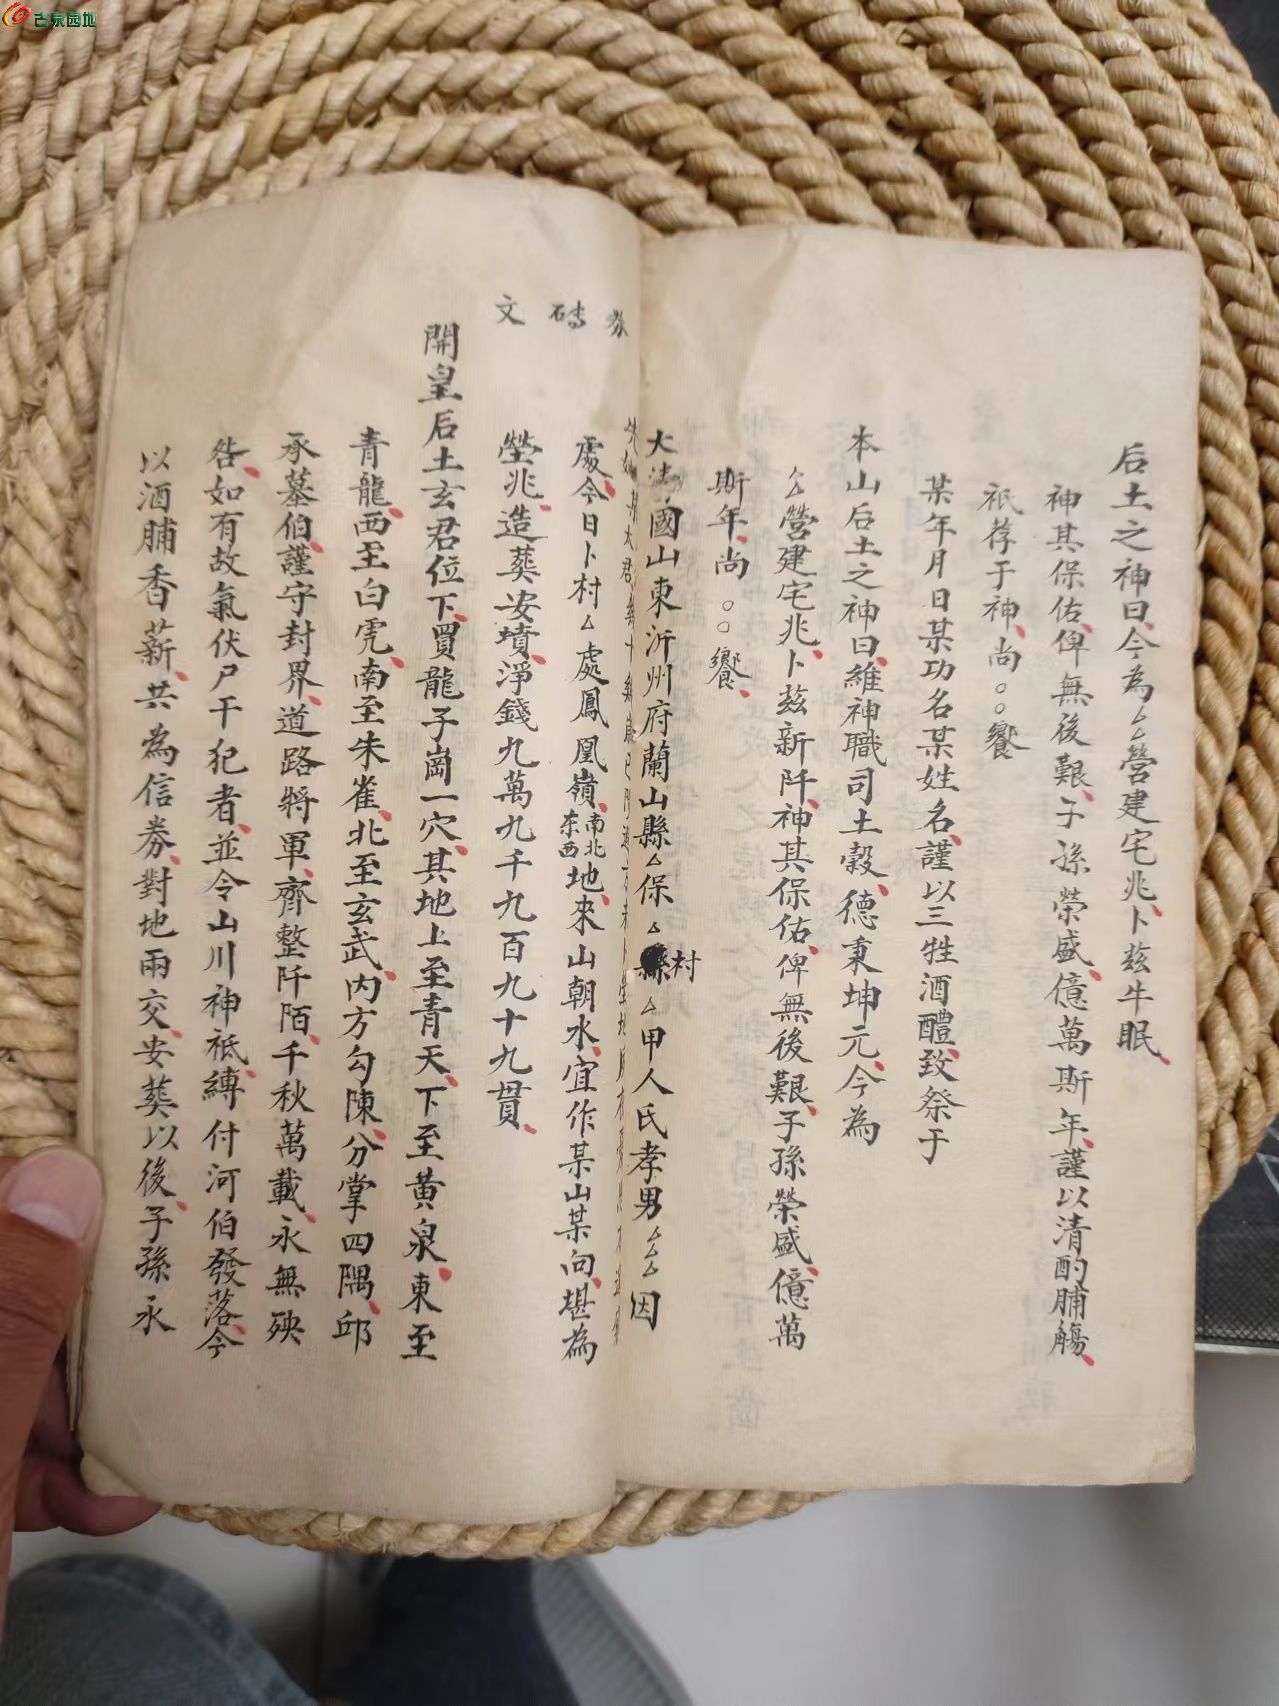 古泉园地
后土之神曰今為厶厶營建宅兆卜兹牛眠
神其保佑俾無後艱子孫榮盛億萬斯年謹以清酌脯觴
祇荐于神尚。。饗
某年月日某功名某姓名謹以三牲酒醴致祭于
本山后土之神曰維神職司土穀德秉坤元今為
厶厶營建宅兆卜兹新阡神其保佑俾無後艱子孫榮盛億萬
斯年尚。。饗
券磚文
大法國山東沂州府蘭山縣厶保厶村厶甲人氏孝男厶厶因
處今日卜村厶處鳳凰嶺南北东西地來山朝水宜作某山某向堪為
塋兆造葬安墳淨錢九萬九千九百九十九貫
開皇后土玄君位下買龍子崗一穴其地上至青天下至黃泉東至
青龍西至白虎南至朱雀北至玄武内方勾陳分掌四隅邱
承墓伯謹守封界道路將軍齊整阡陌千秋萬載永無殃
咎如有故氣伏尸干犯者並令山川神祇縛付河伯發落今
以酒脯香薪共為信券對地兩交安葬以後子孫永